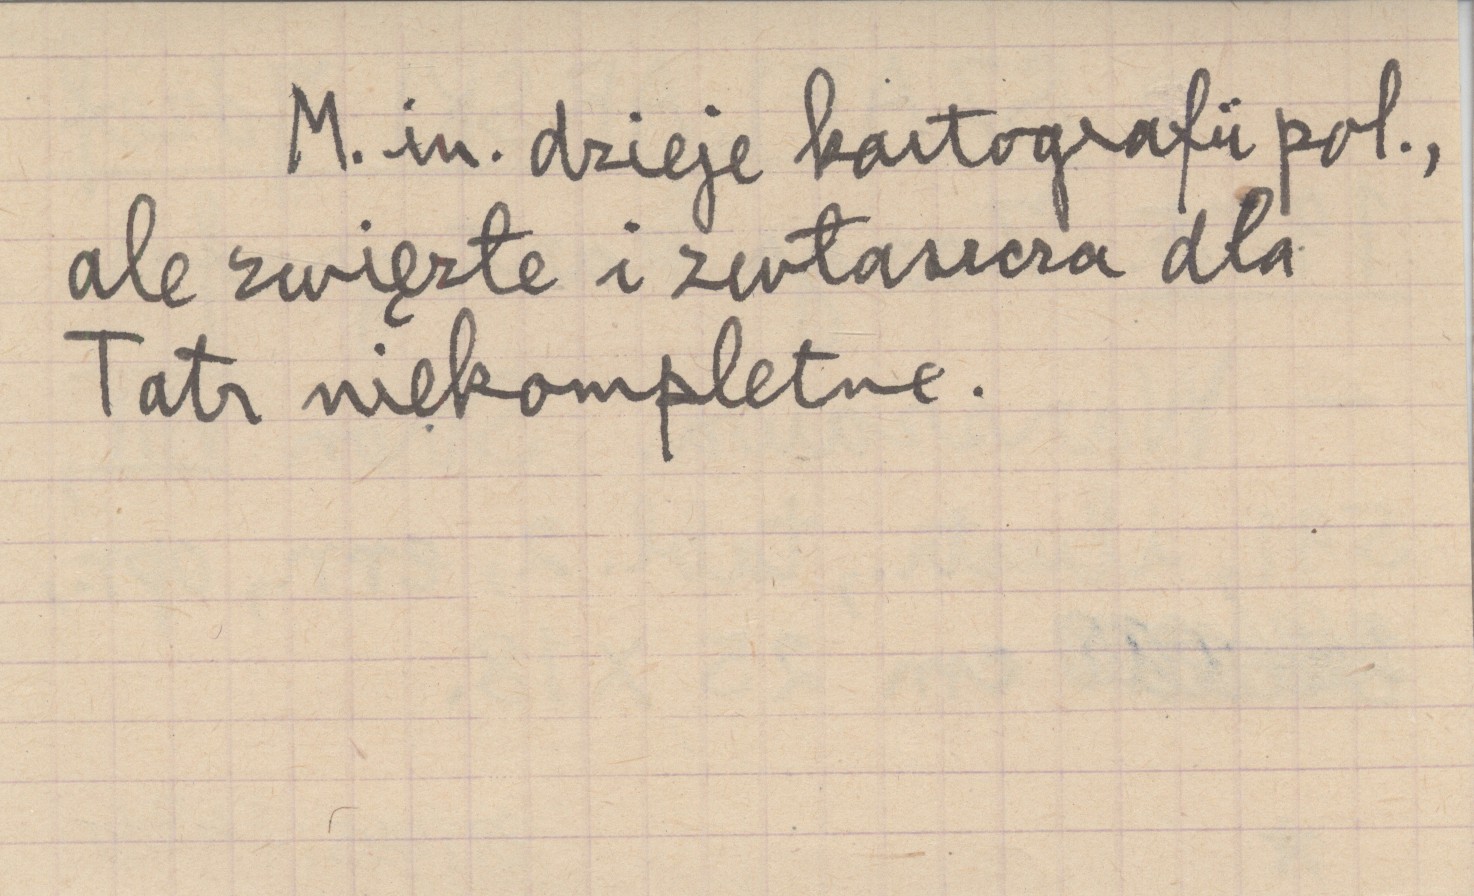 M. in. dzieje kartografii pol.,
ale zwięzłe i zwłaszcza dla
Tatr niekompletne.